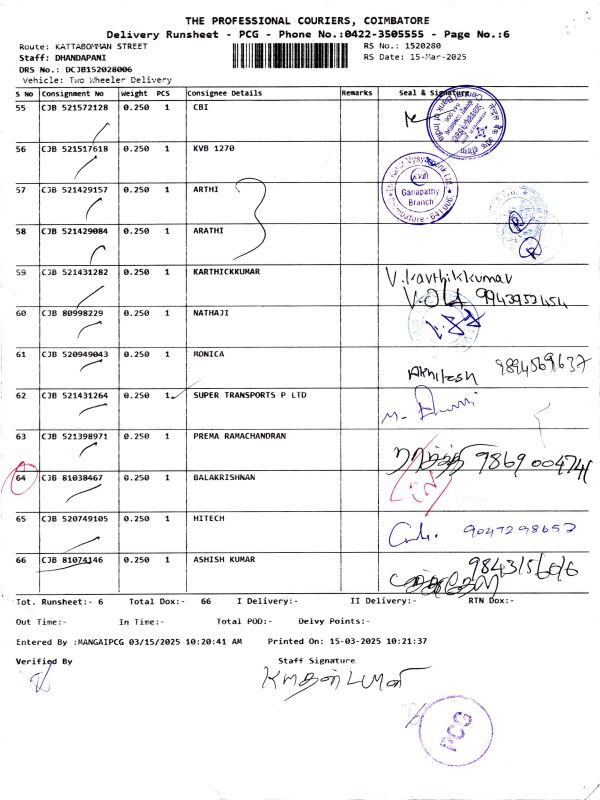 THE PROFESSIONAL COURIERS, COIMBATORE
Delivery Runsheet - PCG - Phone No.:0422-3505555 - Page No.:6
Route: KATTABOMMAN STREET RS No.: 1520280
Staff: DHANDAPANI RS Date: 15-Mar-2025
DRS No.: DCJB152028006
Vehicle: Two Wheeler Delivery
S No Consignment No Weight PCS Consignee Details Remarks Seal & Signature
55 CJB 521572128 0.250 1 CBI
56 CJB 521517618 0.250 1 KVB 1270
Vysya Bank Ltd.
KVB
Ganapathy
Branch
Coimbatore - 641 006
57 CJB 521429157 0.250 1 ARTHI
58 CJB 521429084 0.250 1 ARATHI
59 CJB 521431282 0.250 1 KARTHICKKUMAR V.karthikkumar
60 CJB 80998229 0.250 1 NATHAJI
61 CJB 520949043 0.250 1 MONICA Akhilesh 9894569637
62 CJB 521431264 0.250 1 SUPER TRANSPORTS P LTD
63 CJB 521398971 0.250 1 PREMA RAMACHANDRAN 9869004741
64 CJB 81038467 0.250 1 BALAKRISHNAN
65 CJB 520749105 0.250 1 HITECH 9047298657
66 CJB 81074146 0.250 1 ASHISH KUMAR
Tot. Runsheet:- 6 Total Dox:- 66 I Delivery:- II Delivery:- RTN Dox:-
Out Time:- In Time:- Total POD:- Delvy Points:-
Entered By :MANGAIPCG 03/15/2025 10:20:41 AM Printed On: 15-03-2025 10:21:37
Verified By Staff Signature
PCG